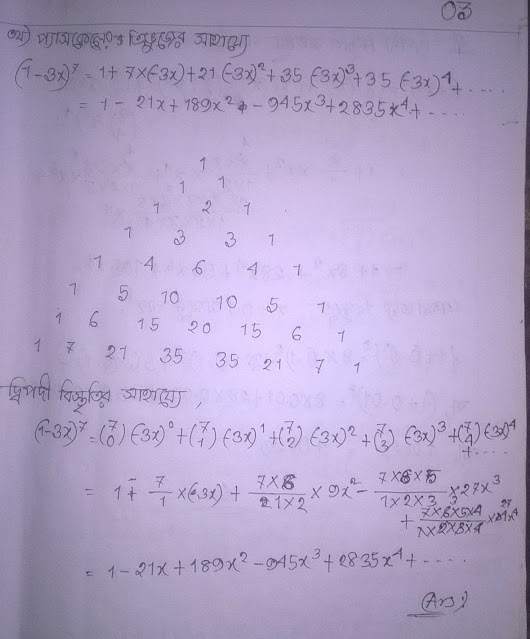 03
অ) প্যাসকেলের ত্রিভুজের সাহায্যে
(1-3x)⁷ = 1 + 7×(-3x) + 21 (-3x)² + 35 (-3x)³ + 35 (-3x)⁴ + ....
= 1 - 21x + 189x² - 945x³ + 2835x⁴ + ....
1
1 1
1 2 1
1 3 3 1
1 4 6 4 1
1 5 10 10 5 1
1 6 15 20 15 6 1
1 7 21 35 35 21 7 1
দ্বিপদী বিস্তৃতির সাহায্যে,
(1-3x)⁷ = (7 0) (-3x)⁰ + (7 1) (-3x)¹ + (7 2) (-3x)² + (7 3) (-3x)³ + (7 4) (-3x)⁴ + ....
= 1 + 7/1 ×(-3x) + 7×6/1×2 × 9x² - 7×6×5/1×2×3 × 27x³
+ 7×6×5×4/1×2×3×4 × 81x⁴
= 1 - 21x + 189x² - 945x³ + 2835x⁴ + ....
(Ans)